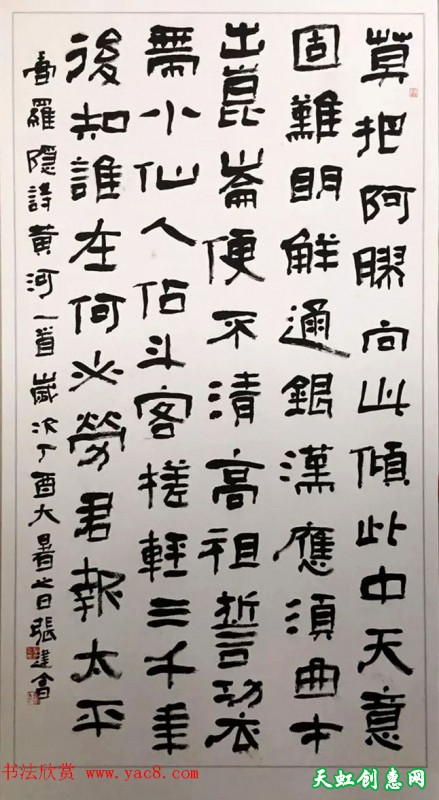 莫把阿膠向此傾此中天意
固難明解通銀漢應須曲才
出崑崙便不清高祖誓言功衣
帶小仙人佔斗客槎輕三千年
後知誰在何必勞君報太平
書羅隱詩黄河一首歲次丁酉大暑之日張建會
书法欣赏 www.yac8.com
天虹创惠网